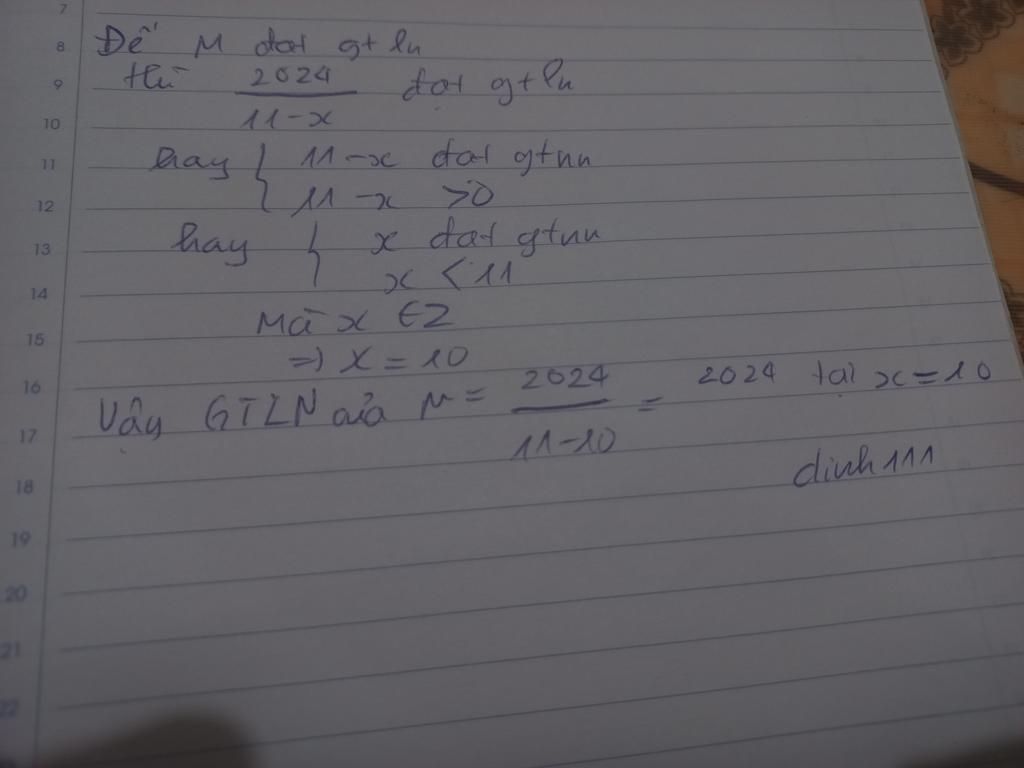 7
8 Để M đạt gt ln
9 thì 2024 / 11-x đạt gt ln
10
11 hay { 11-x đạt gtnn
12 11-x >0
13 hay { x đạt gtnn
14 x < 11
15 Mà x ∈ Z
16 => x = 10
17 Vậy GTLN của M = 2024 / 11-10 = 2024 tại x=10
18 dinh111
19
20
21
22